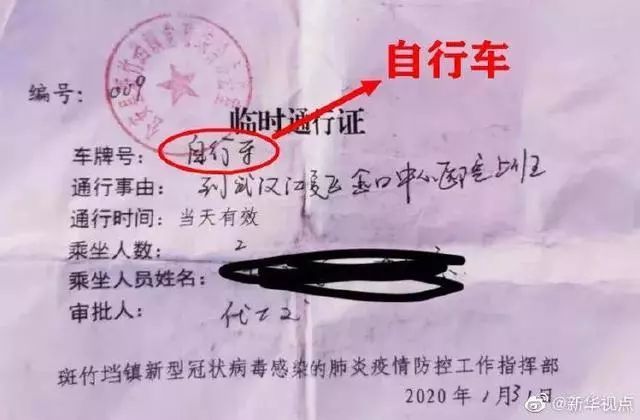 自行车
编号：009
临时通行证
车牌号：自行车
通行事由：到武汉江夏区金口中心医院上班
通行时间：当天有效
乘坐人数：2
乘坐人员姓名：
审批人：
斑竹垱镇新型冠状病毒感染的肺炎疫情防控工作指挥部
2020年1月31日
@新华视点